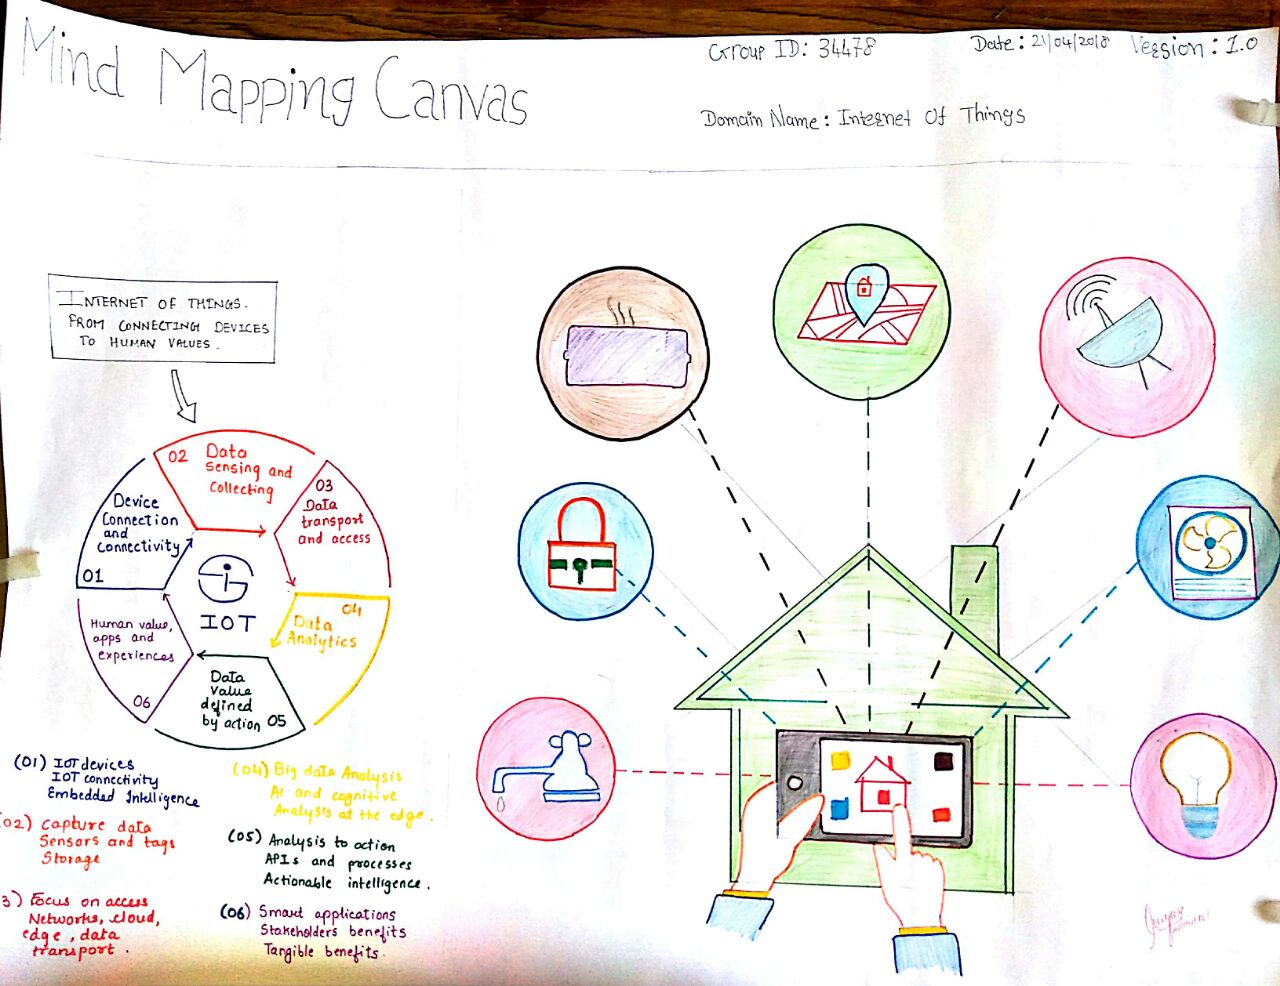 Mind Mapping Canvas
Group ID: 34478
Date: 21/04/2018
Version: 1.0
Domain Name: Internet Of Things
INTERNET OF THINGS.
FROM CONNECTING DEVICES
TO HUMAN VALUES.
Device
Connection
and
Connectivity
01
02 Data
Sensing and
Collecting
03
Data
transport
and access
04
Data
Analytics
Data
Value
defined
by action 05
Human value,
apps and
experiences
06
IOT
(01) IOT devices
IOT connectivity
Embedded Intelligence
02) Capture data
Sensors and tags
Storage
3) Focus on access
Networks, cloud,
edge, data
transport.
(04) Big data Analysis
AI and cognitive
Analysis at the edge.
(05) Analysis to action
APIs and processes
Actionable intelligence.
(06) Smart applications
Stakeholders benefits
Tangible benefits.